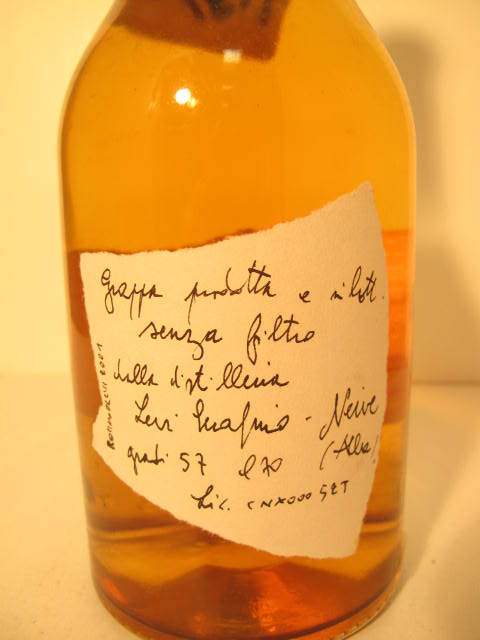 Grappa prodotta e imbott.
senza filtro
dalla distilleria
Levi Serafino - Neive
gradi 57 l 70 (Alba)
Lic. CNX00052T
ROMANO LEVI 2001